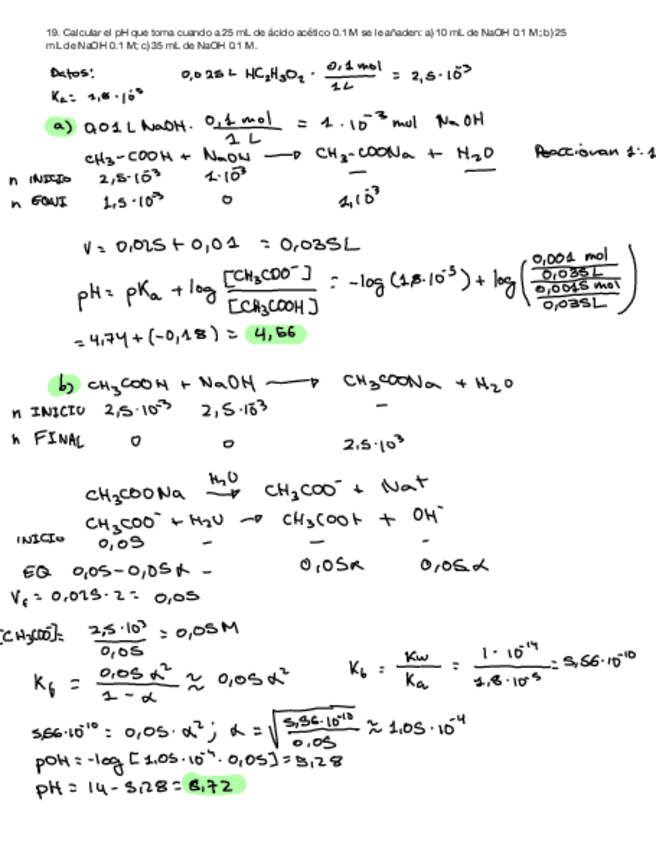 19. Calcular el pH que toma cuando a 25 mL de ácido acético 0.1 M se le añaden: a) 10 mL de NaOH 0.1 M; b) 25
mL de NaOH 0.1 M; c) 35 mL de NaOH 0.1 M.
Datos: 0,025L HC₂H₃O₂ · 0,1 mol / 1L = 2,5·10⁻³
Ka = 1,8·10⁻⁵
a) 0,01 L NaOH · 0,1 mol / 1 L = 1·10⁻³ mol NaOH
CH₃-COOH + NaOH → CH₃-COONa + H₂O Reaccionan 1:1
n INICIO 2,5·10⁻³ 1·10⁻³ — —
n EQUI 1,5·10⁻³ 0 1,10⁻³
V = 0,025 + 0,01 = 0,035L
pH = pKa + log [CH₃COO⁻] / [CH₃COOH] = -log (1,8·10⁻⁵) + log (0,001 mol / 0,035L / 0,0015 mol / 0,035L)
= 4,74 + (-0,18) = 4,56
b) CH₃COOH + NaOH → CH₃COONa + H₂O
n INICIO 2,5·10⁻³ 2,5·10⁻³ —
n FINAL 0 0 2,5·10⁻³
CH₃COONa H₂O → CH₃COO⁻ + Na⁺
CH₃COO⁻ + H₂O → CH₃COOH + OH⁻
INICIO 0,05 — — —
EQ 0,05-0,05α — 0,05α 0,05α
Vf = 0,025·2 = 0,05
[CH₃COO⁻] = 2,5·10⁻³ / 0,05 = 0,05M
Kb = 0,05α² / 1-α ≈ 0,05α² Kb = Kw / Ka = 1·10⁻¹⁴ / 1,8·10⁻⁵ = 5,56·10⁻¹⁰
5,56·10⁻¹⁰ = 0,05·α²; α = √5,56·10⁻¹⁰ / 0,05 ≈ 1,05·10⁻⁴
pOH = -log [1,05·10⁻⁴·0,05] = 5,28
pH = 14 - 5,28 = 8,72